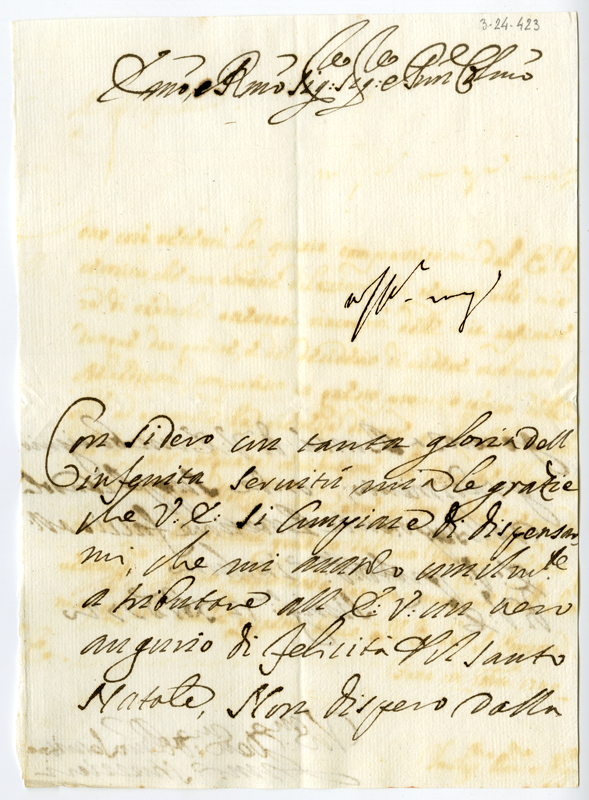 3-24-423
Emo, e Rmo Sig: Sig: e Prin Colmo
Considero con tanta gloria dell
infinita servitù mia le grazie
che V: E: si compiace di dispensar
mi, che mi avanzo umilmte
a tributare all E: V: un vero
augurio di felicità del santo
Natale, Non dispero dalla